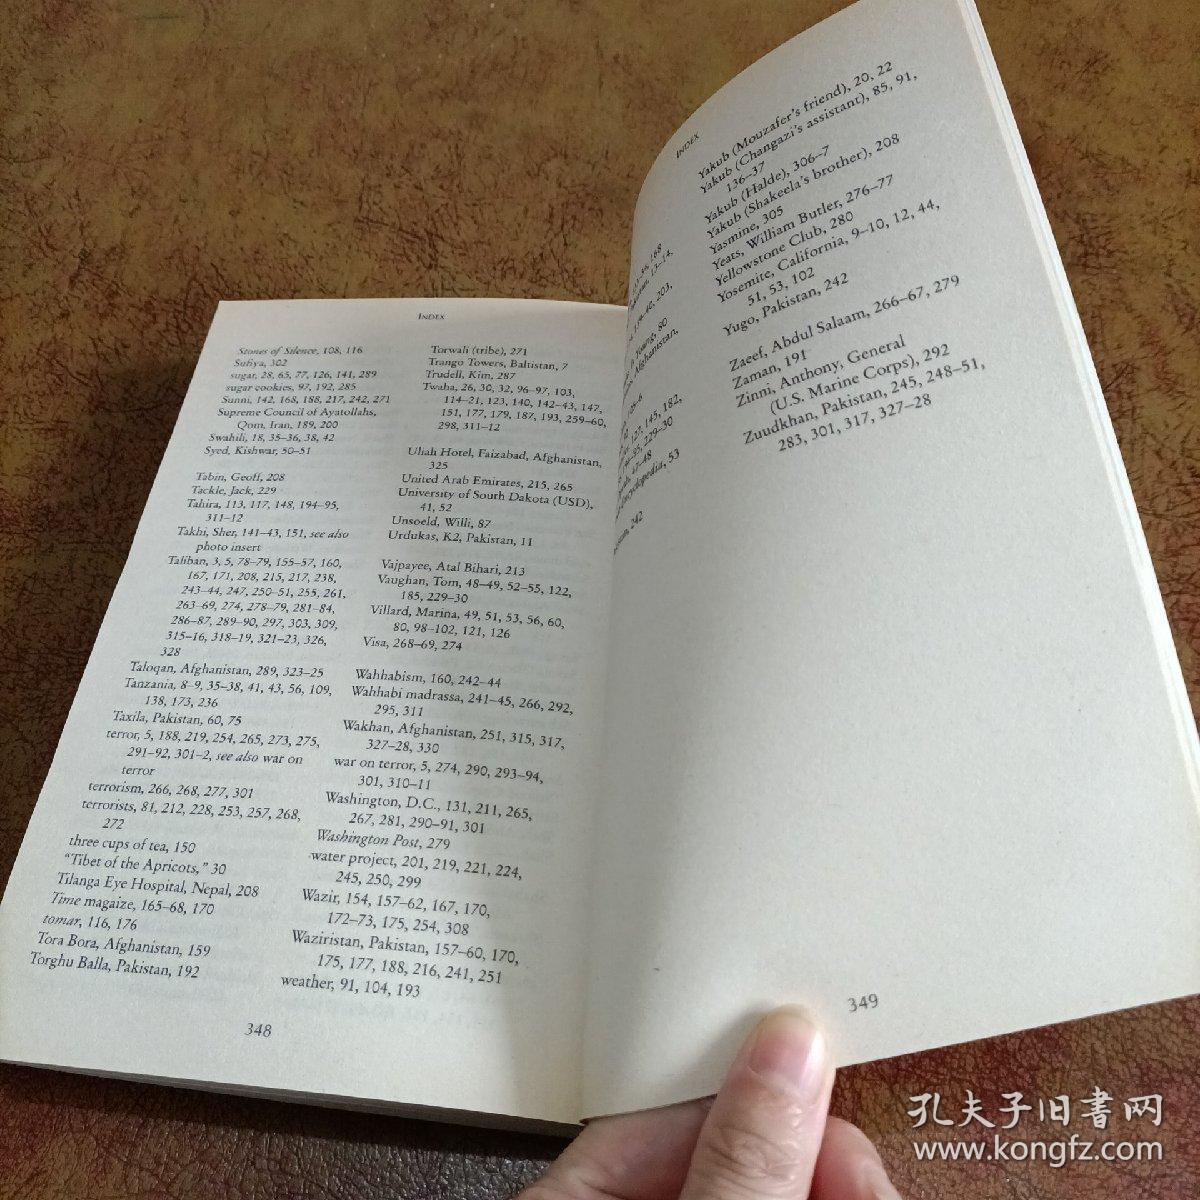 INDEX
Stones of Silence, 108, 116
Sufiya, 302
sugar, 28, 65, 77, 126, 141, 289
sugar cookies, 97, 192, 285
Sunni, 142, 168, 188, 217, 242, 271
Supreme Council of Ayatollahs,
Qom, Iran, 189, 200
Swahili, 18, 35–36, 38, 42
Syed, Kishwar, 50–51
Tabin, Geoff, 208
Tackle, Jack, 229
Tahira, 113, 117, 148, 194–95,
311–12
Takhi, Sher, 141–43, 151, see also
photo insert
Taliban, 3, 5, 78–79, 155–57, 160,
167, 171, 208, 215, 217, 238,
243–44, 247, 250–51, 255, 261,
263–69, 274, 278–79, 281–84,
286–87, 289–90, 297, 303, 309,
315–16, 318–19, 321–23, 326,
328
Taloqan, Afghanistan, 289, 323–25
Tanzania, 8–9, 35–38, 41, 43, 56, 109,
138, 173, 236
Taxila, Pakistan, 60, 75
terror, 5, 188, 219, 254, 265, 273, 275,
291–92, 301–2, see also war on
terror
terrorism, 266, 268, 277, 301
terrorists, 81, 212, 228, 253, 257, 268,
272
three cups of tea, 150
“Tibet of the Apricots,” 30
Tilanga Eye Hospital, Nepal, 208
Time magaize, 165–68, 170
tomar, 116, 176
Tora Bora, Afghanistan, 159
Torghu Balla, Pakistan, 192
Torwali (tribe), 271
Trango Towers, Baltistan, 7
Trudell, Kim, 287
Twaha, 26, 30, 32, 96–97, 103,
114–21, 123, 140, 142–43, 147,
151, 177, 179, 187, 193, 259–60,
298, 311–12
Uliah Hotel, Faizabad, Afghanistan,
325
United Arab Emirates, 215, 265
University of South Dakota (USD),
41, 52
Unsoeld, Willi, 87
Urdukas, K2, Pakistan, 11
Vajpayee, Atal Bihari, 213
Vaughan, Tom, 48–49, 52–55, 122,
185, 229–30
Villard, Marina, 49, 51, 53, 56, 60,
80, 98–102, 121, 126
Visa, 268–69, 274
Wahhabism, 160, 242–44
Wahhabi madrassa, 241–45, 266, 292,
295, 311
Wakhan, Afghanistan, 251, 315, 317,
327–28, 330
war on terror, 5, 274, 290, 293–94,
301, 310–11
Washington, D.C., 131, 211, 265,
267, 281, 290–91, 301
Washington Post, 279
water project, 201, 219, 221, 224,
245, 250, 299
Wazir, 154, 157–62, 167, 170,
172–73, 175, 254, 308
Waziristan, Pakistan, 157–60, 170,
175, 177, 188, 216, 241, 251
weather, 91, 104, 193
348
INDEX
168
13–14,
203,
Young, 80
Afghanistan,
127, 145, 182,
229–30
47–48
Encyclopedia, 53
242
Yakub (Mouzafer's friend), 20, 22
Yakub (Changazi's assistant), 85, 91,
136–37
Yakub (Halde), 306–7
Yakub (Shakeela's brother), 208
Yasmine, 305
Yeats, William Butler, 276–77
Yellowstone Club, 280
Yosemite, California, 9–10, 12, 44,
51, 53, 102
Yugo, Pakistan, 242
Zaeef, Abdul Salaam, 266–67, 279
Zaman, 191
Zinni, Anthony, General
(U.S. Marine Corps), 292
Zuudkhan, Pakistan, 245, 248–51,
283, 301, 317, 327–28
349
孔夫子旧书网
www.kongfz.com